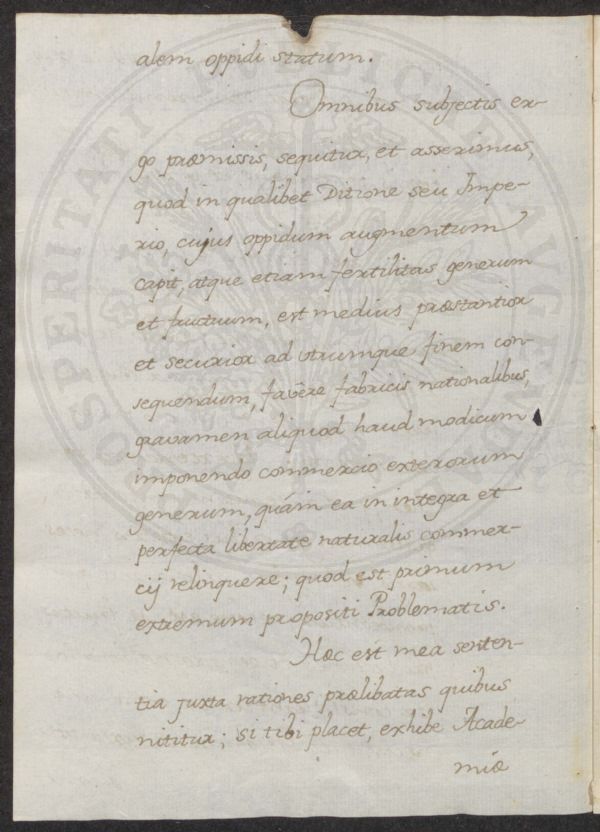 alem oppidi statum.
Omnibus subjectis er-
go præmissis, sequitur, et asserimus,
quod in qualibet Ditione seu Impe-
rio, cujus oppidum augmentum
capit, atque etiam fertilitas generum
et fructuum, est medius præstantior
et securior ad utrumque finem con-
sequendum, favere fabricis nationalibus,
gravamen aliquod haud modicum
imponendo commercio exterorum
generum, quám ea in integra et
perfecta libertate naturalis commer-
cij relinquere; quod est primum
extremum propositi Problematis.
Hæc est mea senten-
tia juxta rationes prælibatas quibus
nititur; si tibi placet, exhibe Acade-
miæ
PROSPERITATI PUBLICÆ AUGENDÆ